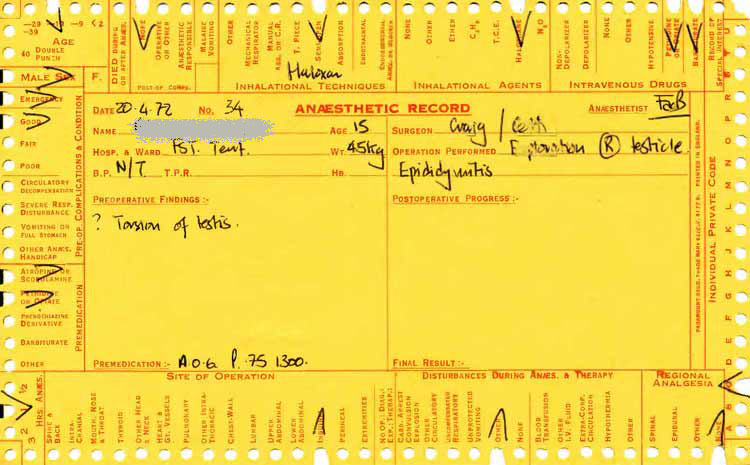 -29 -19 -9 <2
-39
AGE
40 DOUBLE PUNCH
DIED DURING OR AFTER ANÆS.
NONE
OPERATIVE OR OTHER
ANÆSTHETIC RESPONSIBLE
MALAISE VOMITING
OTHER
MECHANICAL RESPIRATOR
T. PIECE
ABSORPTION
ENDOTRACHEAL
NONE
OTHER
ETHER
C₃H₆
T.C.E.
N₂O
NON-DEPOLARIZER
DEPOLARIZER
NONE
OTHER
HYPOTENSIVE
RECORD OF SPECIAL INTEREST
MALE SEX F.
POST-OP COMPS.
Haloxan
INHALATIONAL TECHNIQUES
INHALATIONAL AGENTS
INTRAVENOUS DRUGS
EMERGENCY
GOOD
FAIR
POOR
CIRCULATORY DECOMPENSATION
SEVERE RESP. DISTURBANCE
VOMITING OR FULL STOMACH
OTHER ANÆS. HANDICAP
PRE-OP. COMPLICATIONS & CONDITION
ATROPINE OR SCOPOLAMINE
PETHIDINE OR OPIATE
PHENOTHIAZINE DERIVATIVE
BARBITURATE
OTHER
PREMEDICATION
DATE 20.4.72 No. 34 ANÆSTHETIC RECORD ANÆSTHETIST
NAME AGE 15 SURGEON Craig /
HOSP. & WARD PST. Temp. WT. 45kg OPERATION PERFORMED Exploration (R) testicle
B.P. N/T T.P.R. HB. Epididymitis
PREOPERATIVE FINDINGS :- POSTOPERATIVE PROGRESS :-
? Torsion of testis.
PREMEDICATION :- A.0.6 P. 75 1300. FINAL RESULT :-
PRINTED IN ENGLAND.
INDIVIDUAL PRIVATE CODE
SITE OF OPERATION
DISTURBANCES DURING ANÆS. & THERAPY
REGIONAL ANALGESIA
3 2 1 ½
HRS. ANÆS.
SPINE & BACK
INTRA-CRANIAL
MOUTH, NOSE & THROAT
THYROID
OTHER HEAD & NECK
HEART & GT. VESSELS
PULMONARY
OTHER INTRA-THORACIC
CHEST-WALL
LUMBAR
UPPER ABDOMINAL
LOWER ABDOMINAL
PERINEAL
EXTREMITIES
CARD. ARREST CONVULSION EXPLOSION
OTHER CIRCULATORY
UNCOMPENSATED RESPIRATORY
UNPROTECTED VOMITING
OTHER
NONE
BLOOD TRANSFUSION
OTHER I.V. FLUID
EXTRA-CORP. CIRCULATION
HYPOTHERMIA
OTHER
SPINAL
EPIDURAL
OTHER
NONE